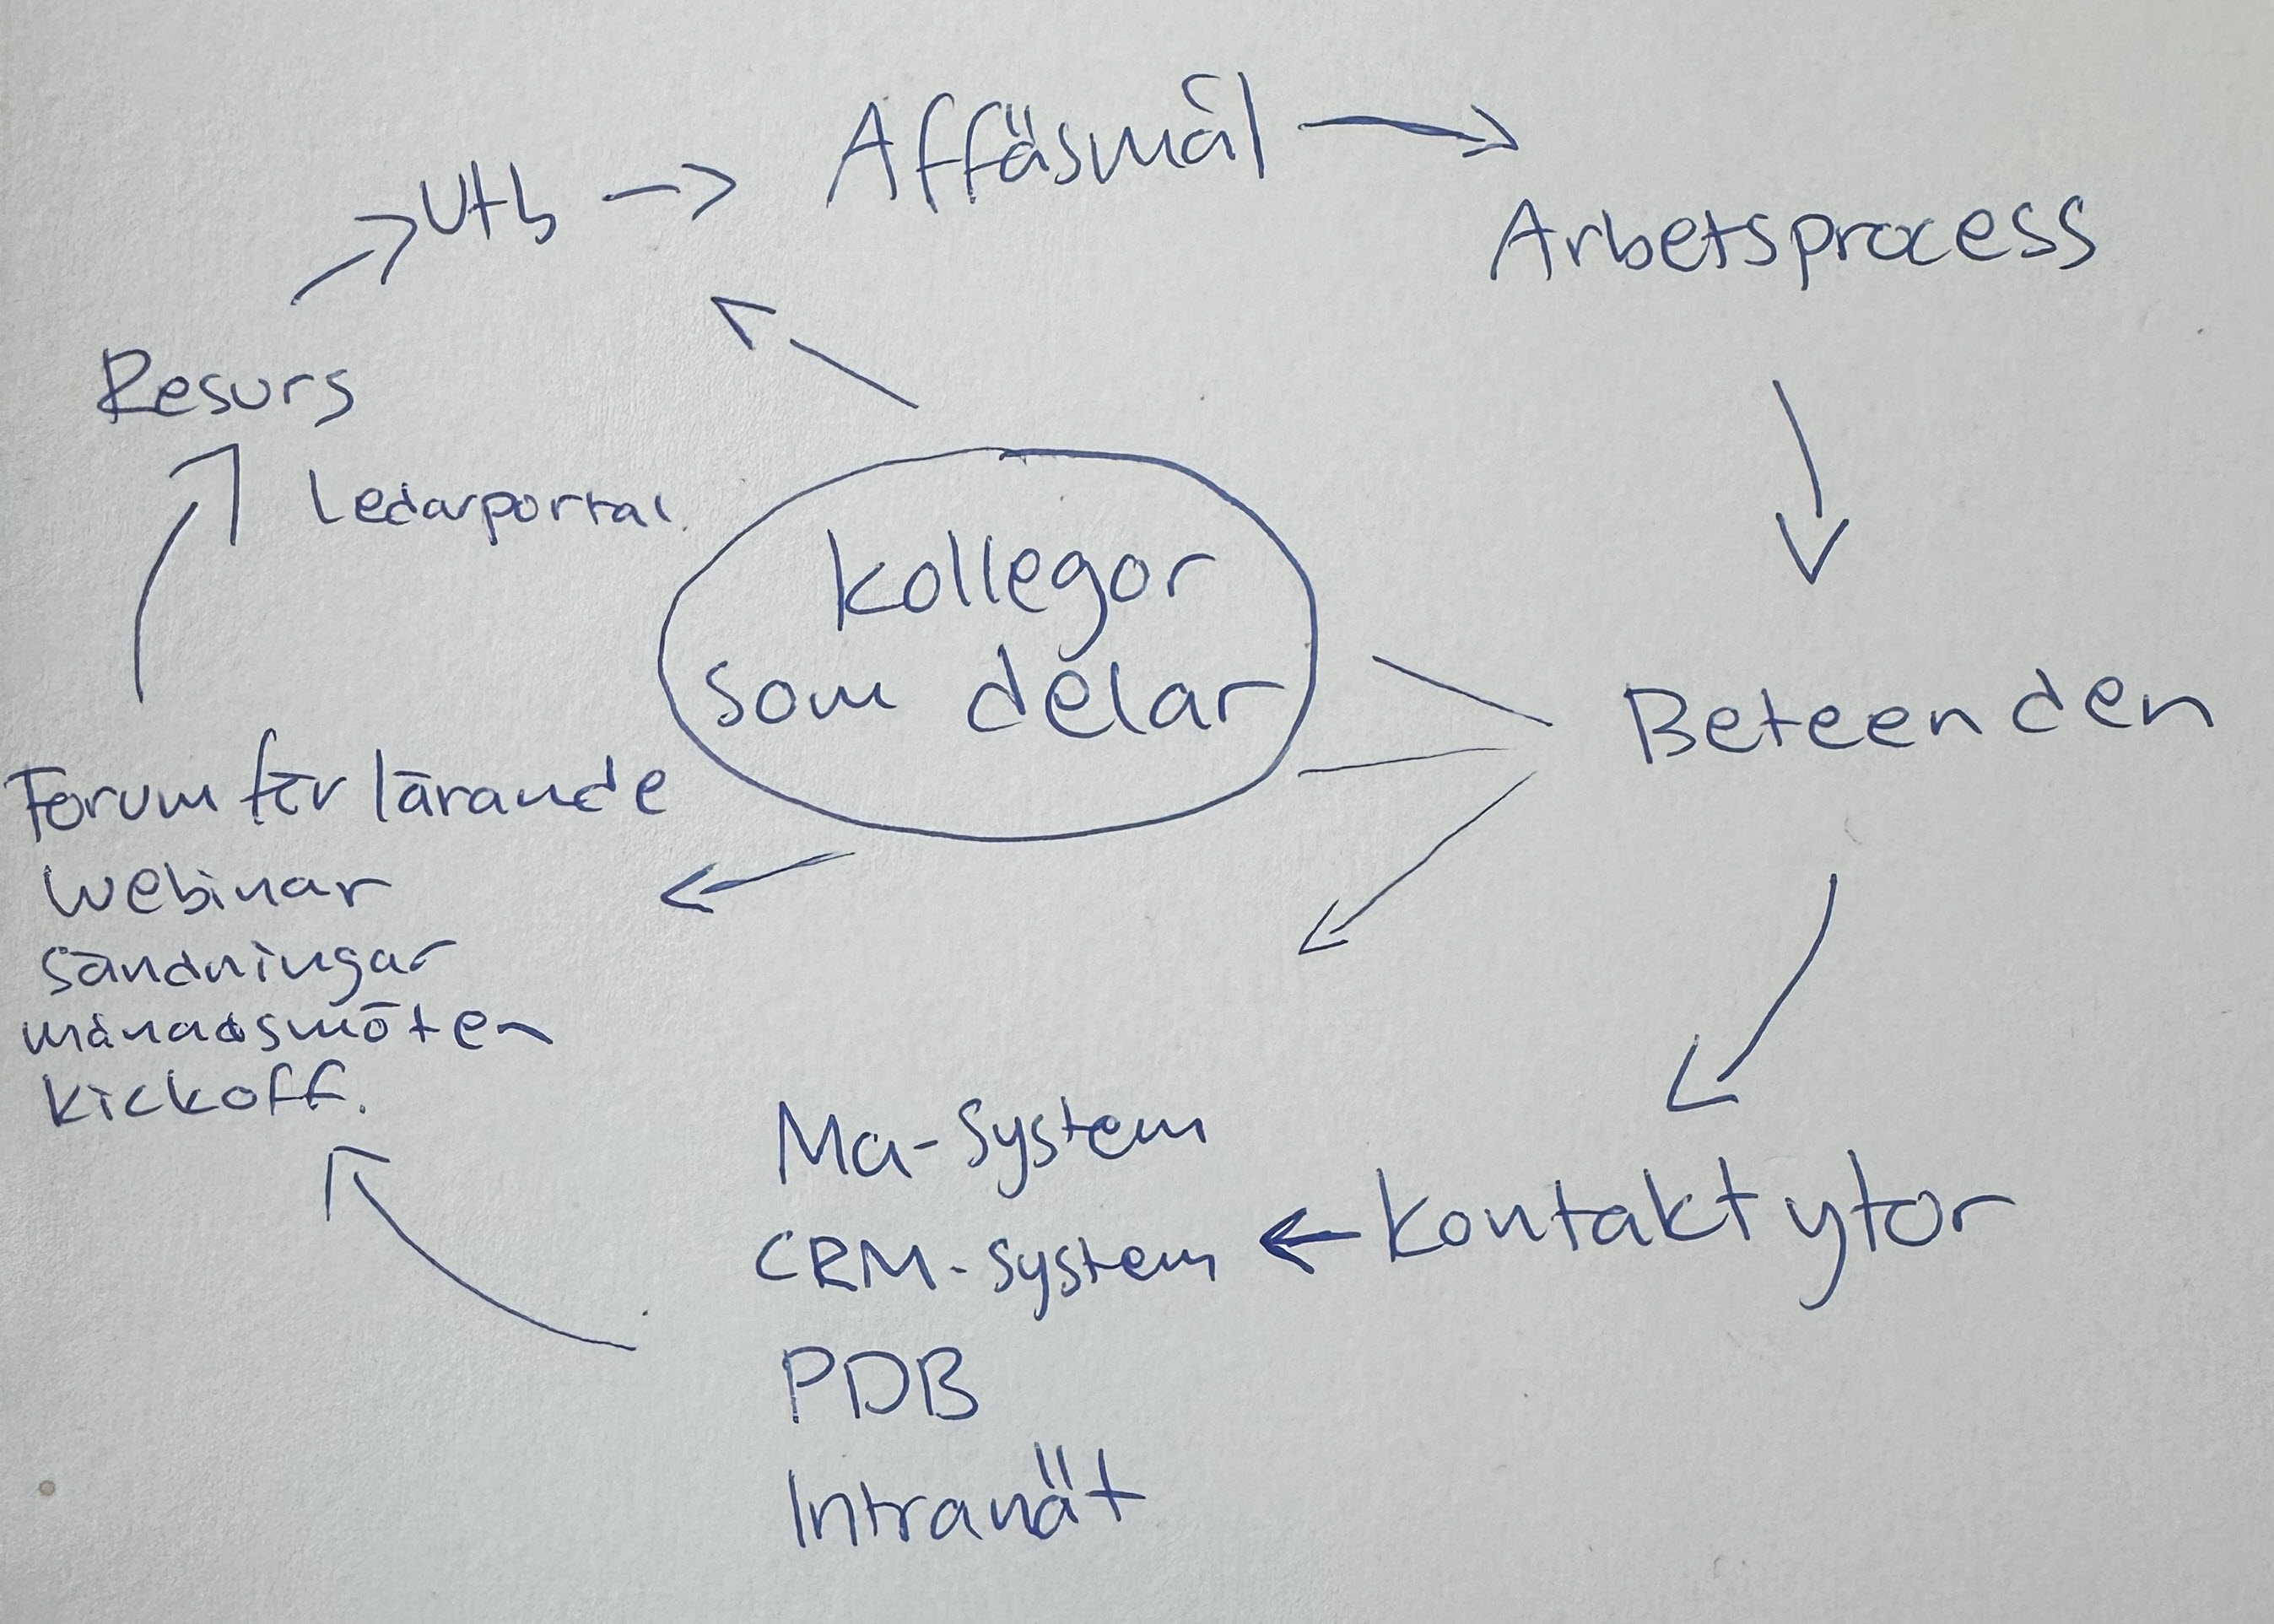 Affäsmål
Utb
Arbetsprocess
Resurs
Ledarportal.
kollegor
som delar
Beteenden
Forum för lärande
webinar
sändningar
månadsmöten
kickoff.
Ma-System
CRM-system
Kontakt ytor
PDB
Intranät